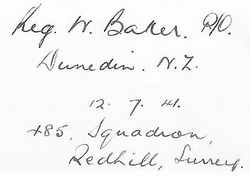 Reg. W. Baker. P/O.
Dunedin. N.Z.
12. 7. 41.
485. Squadron,
Redhill, Surrey.